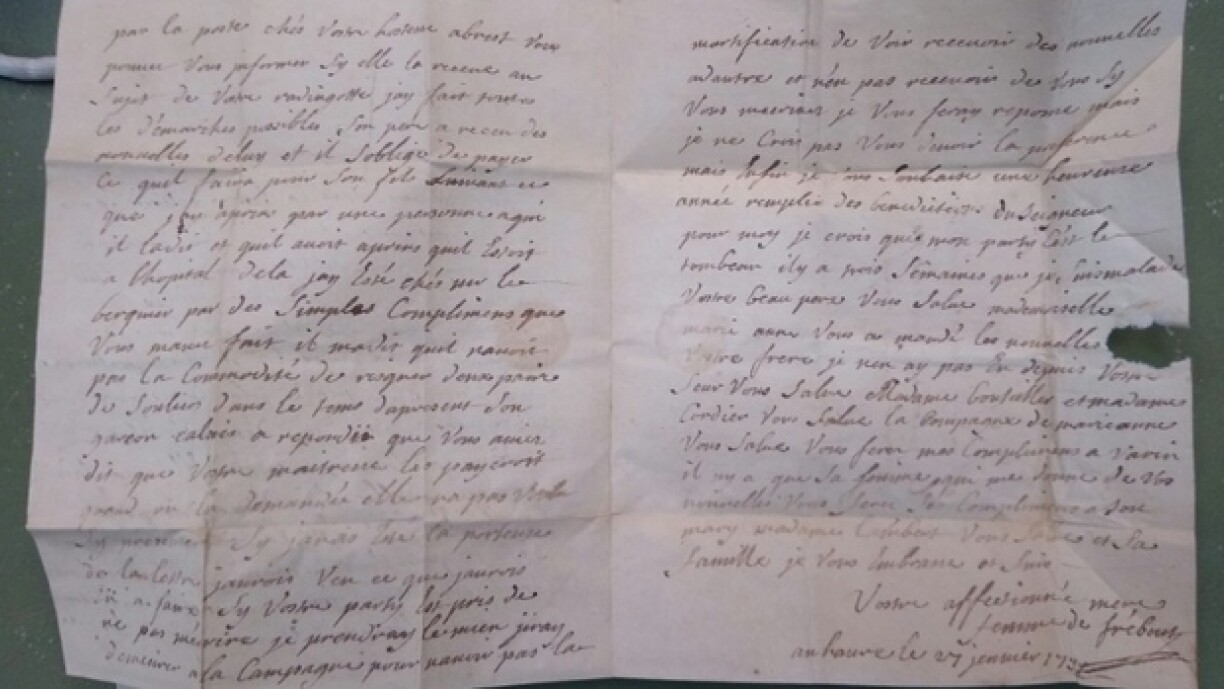 par la poste chés Votre hotesse abrest vous
pouvez Vous informer Sy elle la receue au
Sujet de Votre radingotte jay fait toutes
les démarches possibles Son pere a receu des
nouvelles deluy et il Soblige de payer
Ce quil faira pour Son fils
que j'ay apris par une personne aqui
il ladit et quil avoit apris quil Estoit
a lhopital dela jay Esté chés mr le
berquier par des Simples Complimens que
Vous maves fait il madit quil navoit
pas la Commodité de risquer deux paire
de Souliers dans le tems dapresent Son
garçon calais a repondu que Vous aviez
dit que Votre maitresse les payeroit
quand on la demandée elle na pas Voulu
Sy jarais Esté la porteuse
de la lettre jaurois Veu ce que jaurois
a faire Sy Vostre party Est pris de
ne pas mécrire je prendray le mien jiray
demeurer a la Campagne pour navoir pas la
mortification de Voir recevoir des nouvelles
adautre et n'en pas recevoir de Vous Sy
Vous mecrivez je Vous feray reponse mais
je ne Crois pas Vous devoir la preference
mais Enfin je vous Souhaite une heureuse
année remplie des benedictions du Seigneur
pour moy je crois que mon party Est le
tombeau il y a trois Semaines que je suis malade
Votre beau pere Vous Salue mademoiselle
marie anne Vous a mandé les nouvelles
Votre frere je nen ay pas Eu depuis Votre
Seur Vous Salue Madame boutelles et madame
Cordier Vous Salue la Compagne de marianne
Vous Salue Vous ferez mes Complimens a Varin
il ny a que Sa femme qui me donne de Vos
nouvelles Vous ferez Ses Complimens a Son
mary madame Lambert Vous Salue et Sa
famille je Vous Embrasse et Suis
Vostre affectionné mere
femme de
au havre le 27 jenvier